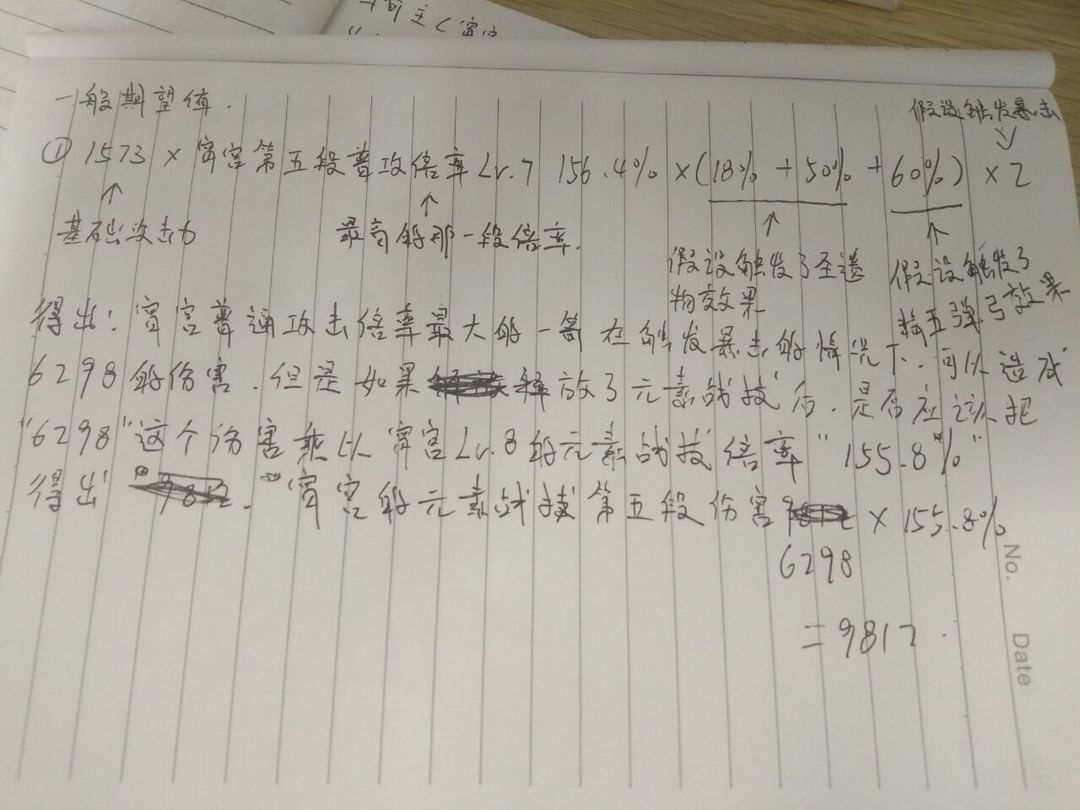 一般期望值.
假设触发暴击
① 1573 × 宵宫第五段普攻倍率Lv.7 156.4% ×(18% + 50% + 60%) × 2
基础攻击力
最高的那一段倍率.
假设触发了圣遗物效果
假设触发了
强弓效果
得出: 宵宫普通攻击倍率最大的一箭在触发暴击的情况下.可以造成
6298的伤害.但是如果释放了元素战技后.是否应该把
"6298"这个伤害乘以宵宫Lv.8的元素战技倍率"155.8%"
得出 "宵宫的元素战技第五段伤害 × 155.8%
6298
=9812.
No.
Date